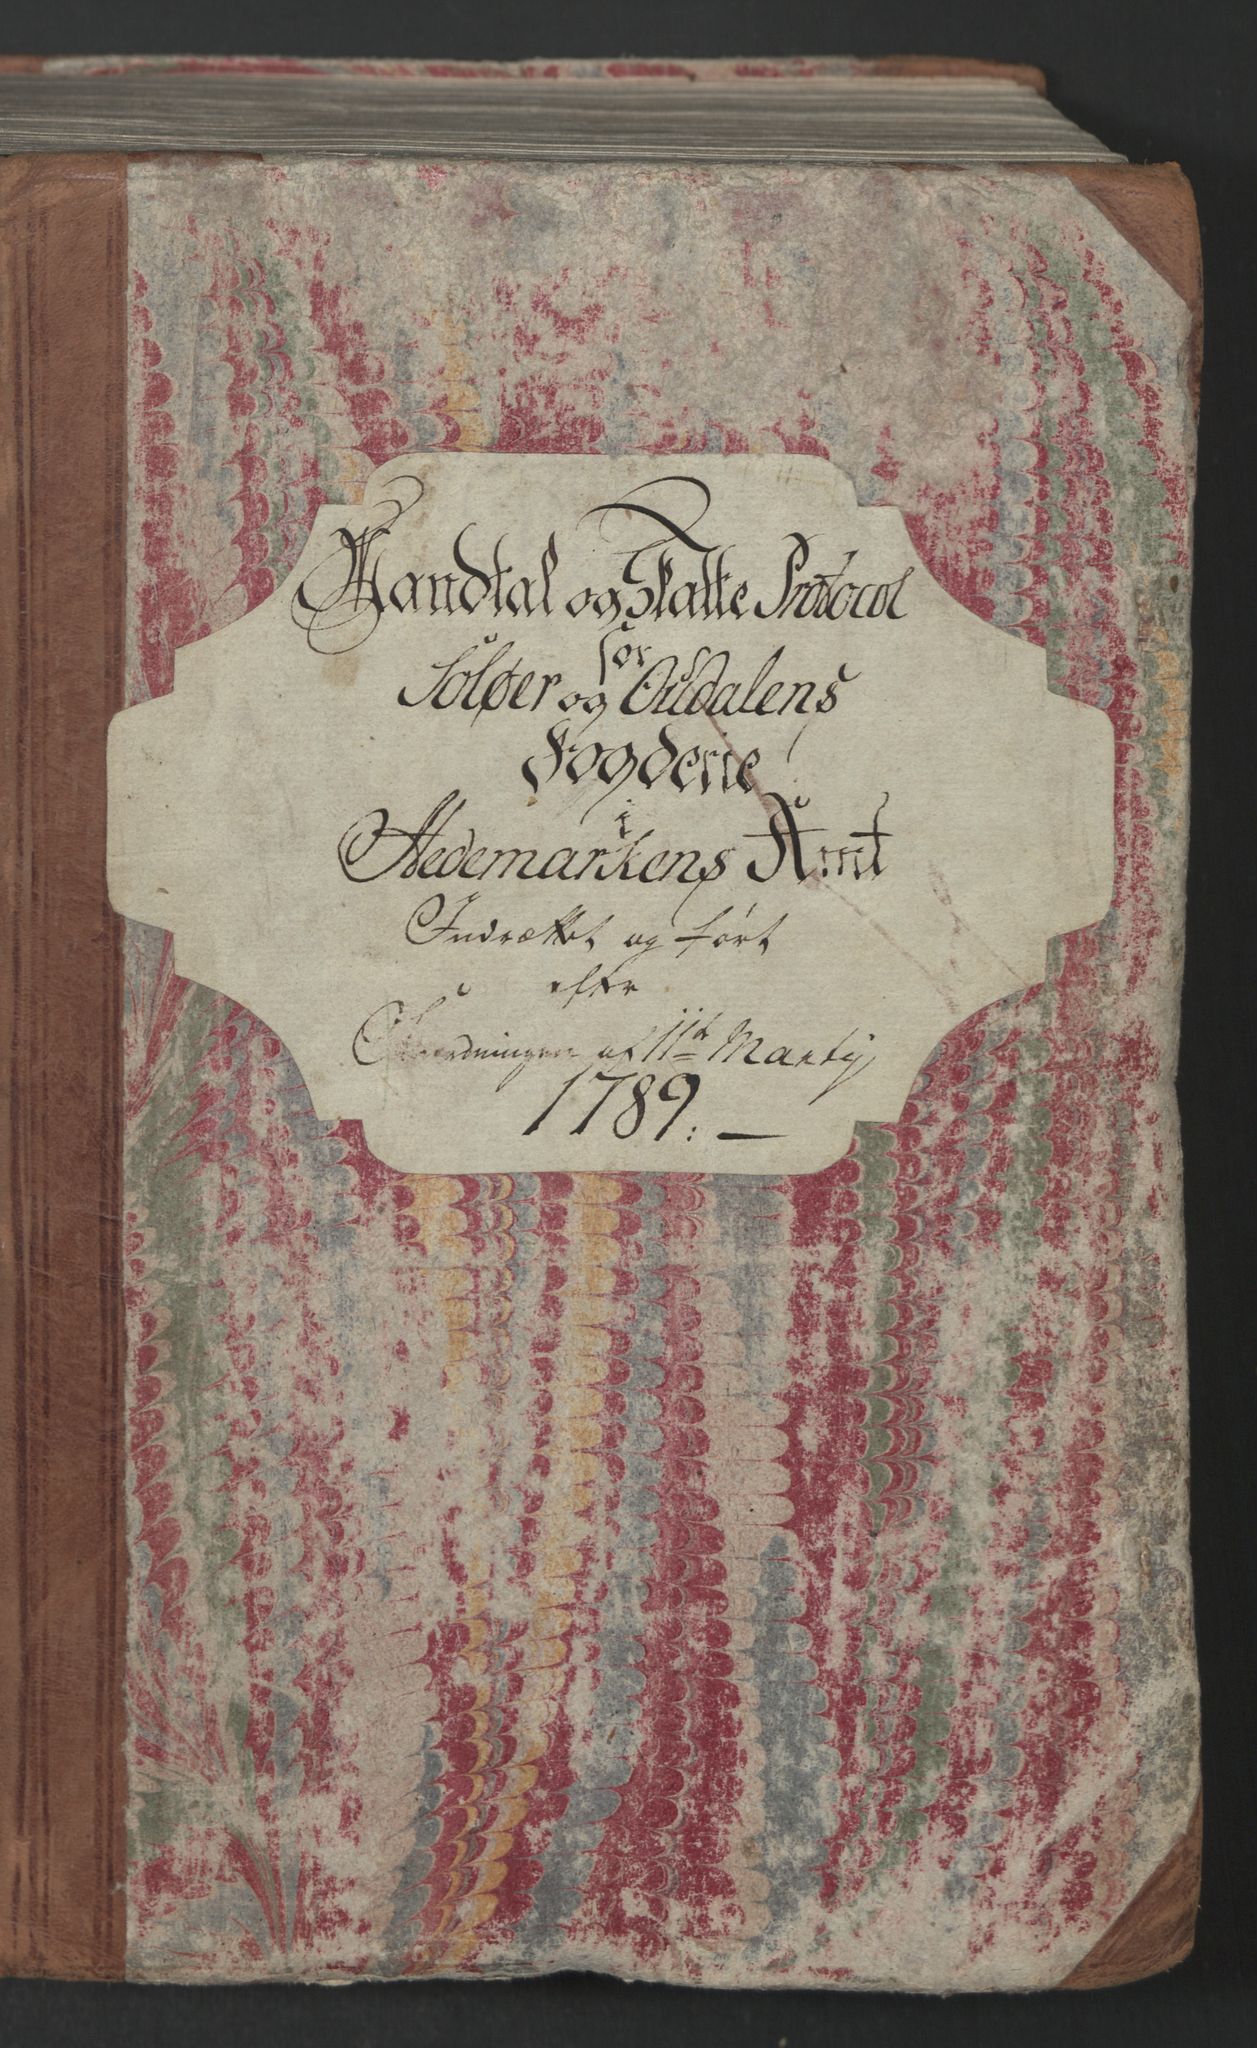 Mandtal og Skatte Protocol
for
Soløer og Oudalens
Fogderie
i
Hedemarkens Amt
Indrættet og ført
efter
Forordningen af 11te Martij
1789. —